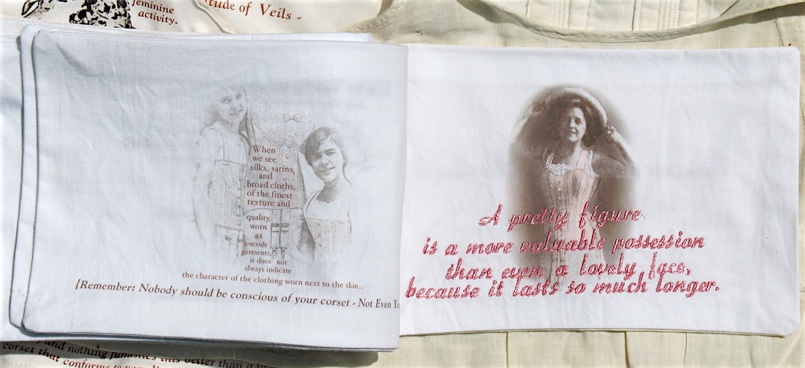 feminine
activity.
tude of Veils -
When
we see
silks, satins,
and
broad cloths,
of the finest
texture and
quality,
worn
as
outside
garments,
it does not
always indicate
the character of the clothing worn next to the skin...
[Remember: Nobody should be conscious of your corset - Not Even Yo
A pretty figure
is a more valuable possession
than even a lovely face,
because it lasts so much longer.
and nothing furnishes this better than a
corset that conforms to